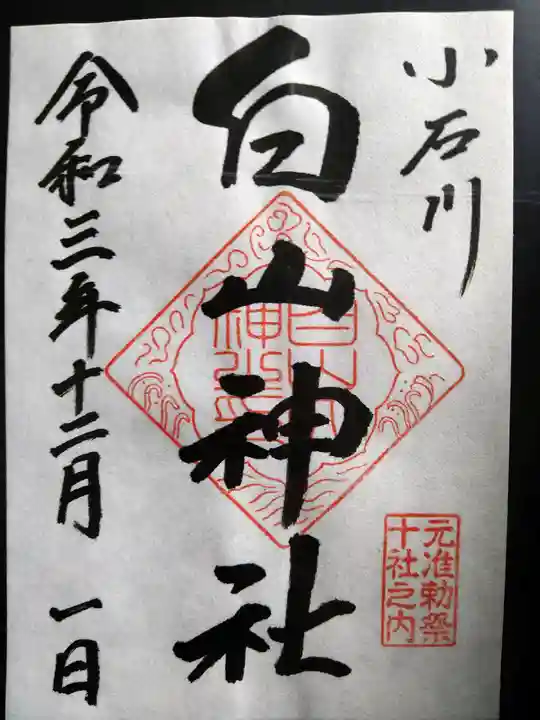 小石川
元准勅祭
十社之内
白山神社
令和三年十二月 一日